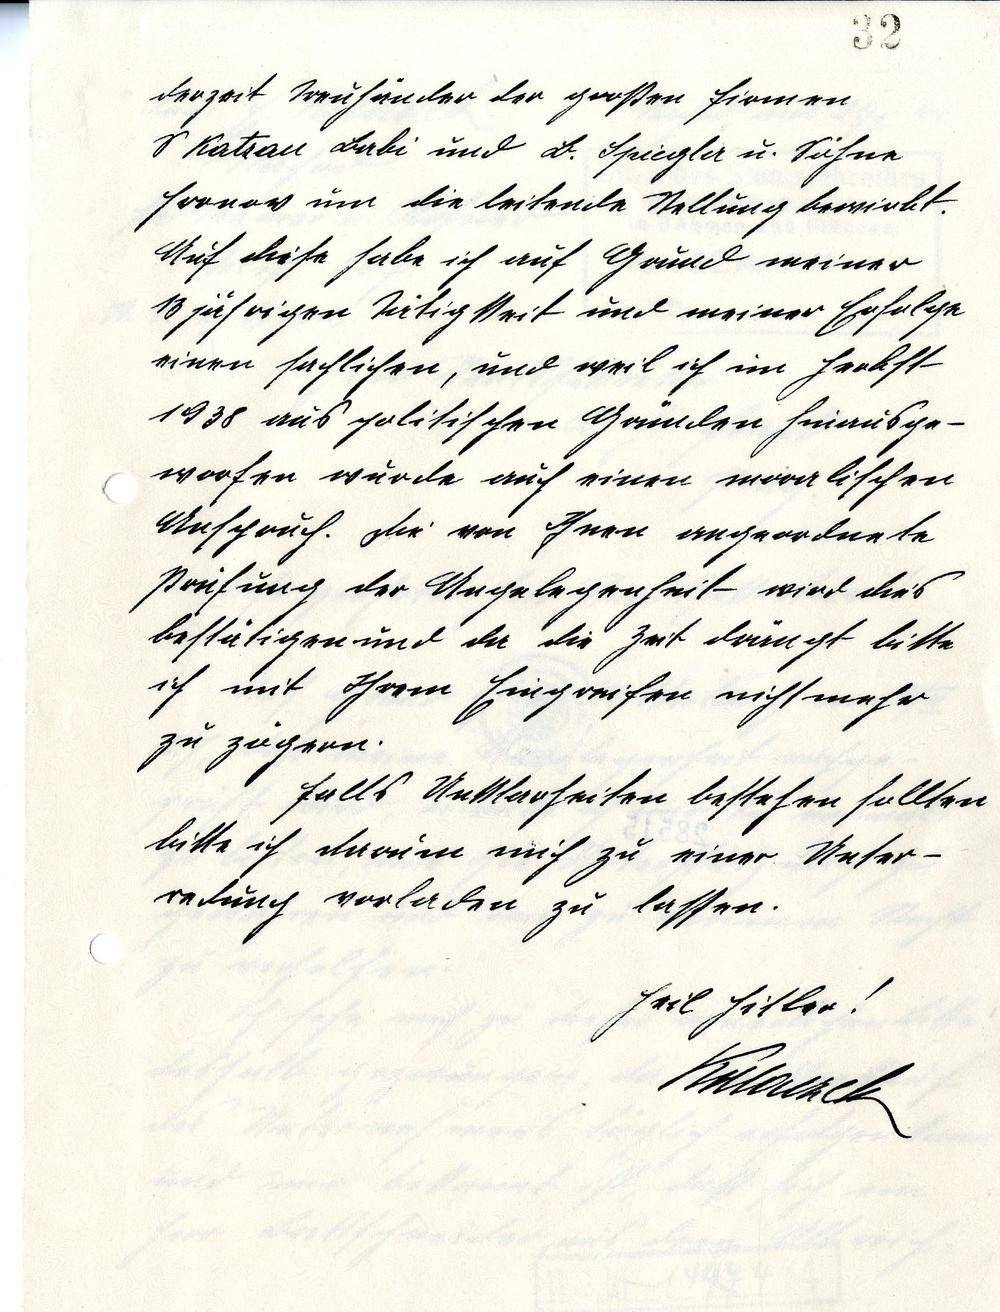 32
derzeit Treuhänder der großen Firmen
S Katzau Babi und B. Spiegler u. Söhne
Hronov um die leitende Stellung bewirbt.
Auf diese habe ich auf Grund meiner
13 jährigen Tätigkeit und meiner Erfolge
einen sachlichen, und weil ich im Herbst
1938 aus politischen Gründen hinausge-
worfen wurde auch einen moralischen
Anspruch. Die von Ihnen angeordnete
Prüfung der Angelegenheit wird dies
bestätigen und da die Zeit drängt bitte
ich mit Ihrem Eingreifen nicht mehr
zu zögern.
Falls Unklarheiten bestehen sollten
bitte ich darum mich zu einer Unter-
redung vorladen zu lassen.
Heil Hitler!